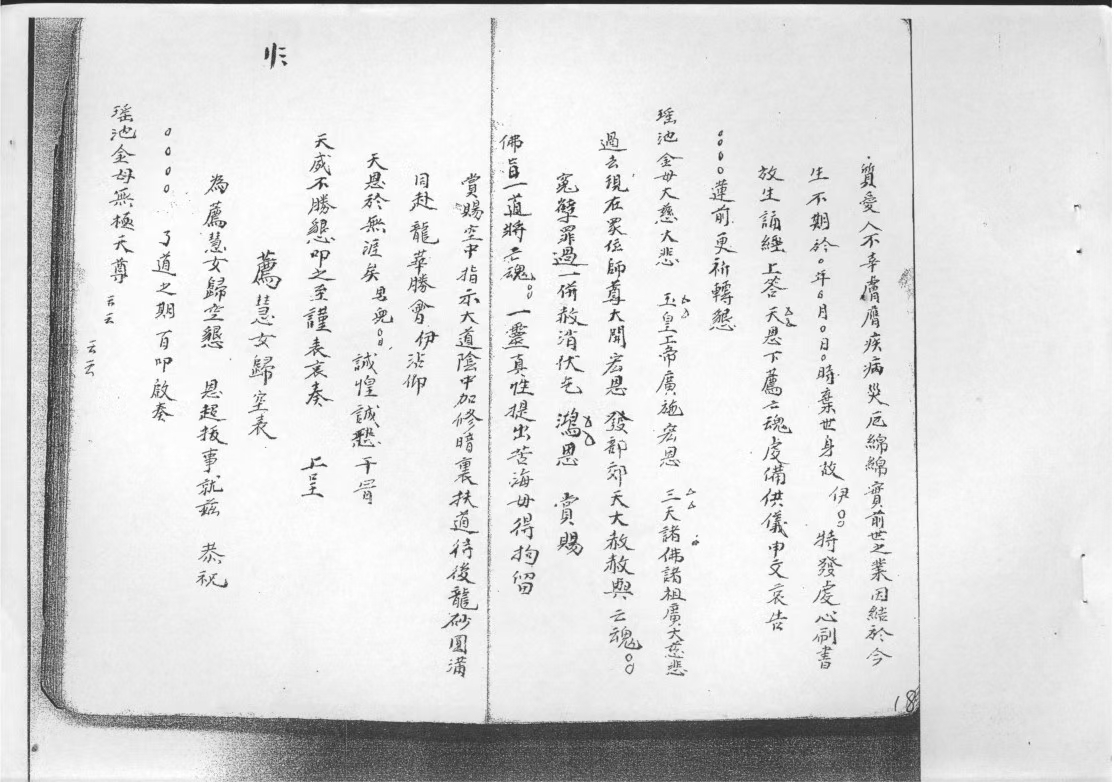 質愛人不幸膚膺疾病災厄綿綿實前世之業因結於今
生不期於○年6月○日○時棄世身故 伊○○ 特發虔心刷書
放生誦經上答 天恩下薦亡魂虔備供儀申文哀告
○○○○蓮前更祈轉懇
瑶池金母大慈大悲 玉皇上帝廣施宏恩 三天諸佛諸祖廣大慈悲
過去現在眾位師尊大開宏恩 發部郊天大赦赦與亡魂○○
冤孽罪過一併赦消伏乞 鴻恩 賞賜
佛旨一道將亡魂○○一靈真性提出苦海毋得拘留
賞賜空中指示大道陰中加修暗裏扶道待後龍砂圓滿
同赴龍華勝會伊沾仰
天恩於無涯矣 男兒○○ 誠惶誠懇干冒
天威不勝懇叩之至謹表哀奏 上呈
薦慧女歸空表
為薦慧女歸空懇 恩超拔事就兹 恭祝
○○○○ 了道之期百叩啟奏
瑶池金母無極天尊 云云
云云
18